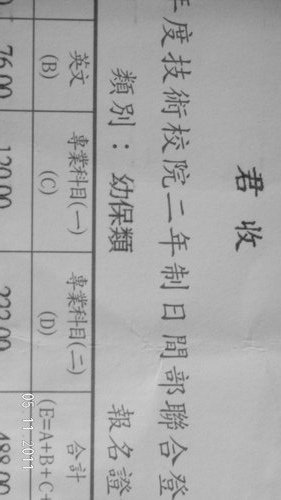 君收
年度技術校院二年制日間部聯合登
類別：幼保類 報名證
英文 專業科目(一) 專業科目(二) 合計
(B) (C) (D) (E=A+B+C+
76.00 120.00 488.00
05 11 2011